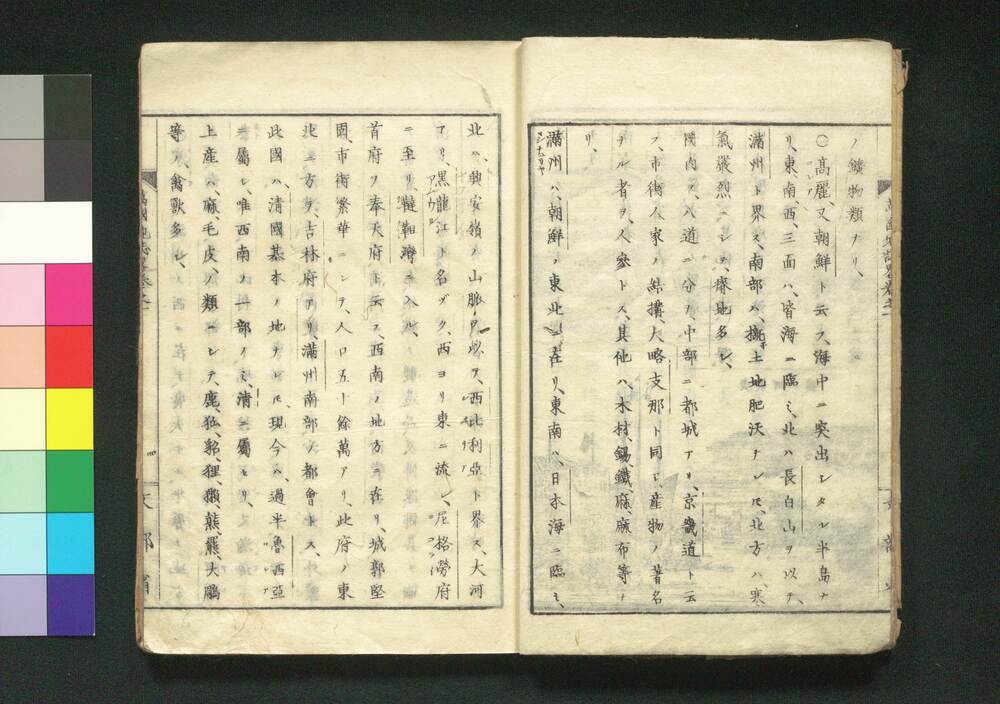 ノ鑛物類ナリ、
〇高麗、又朝鮮ト云フ、海中ニ突出シタル半島ナ
リ、東、南、西、三面ハ、皆海ニ臨ミ、北ハ長白山ヲ以テ、
滿州ト界ス、南部ハ、土地肥沃ナレ𪜈、北方ハ、寒
氣嚴烈ニシテ、瘠地多シ、
國内ヲ、八道ニ分ツ、中部ニ都城アリ、京畿道ト云
フ、市街人家ノ結搆、大略支那ト同シ、産物ノ著名
ナル者ヲ、人參トス、其他ハ、木材、錫、鐵、麻、麻布等ナ
リ、
滿州ハ、朝鮮ノ東北ニ在リ、東南ハ、日本海ニ臨ミ、
北ハ、興安嶺ノ山脈ヲ以テ、西比利亞ト界ス、大河
アリ、黑龍江ト名ヅク、西ヨリ東ニ流レ、尼格勞府
ニ至リ、韃靼灣ニ入ル、
首府ヲ奉天府ト云フ、西南ノ地方ニ在リ、城郭堅
固、市街繁華ニシテ、人口五十餘萬アリ、此府ノ東
北ニ方ヲ、吉林府アリ、滿州南部ノ都會トス、
此國ハ、清國基本ノ地ナレ𪜈、現今ハ、過半魯西亞
ニ屬シ、唯西南ノ一部ノミ、清ニ屬セリ、
土産ハ、麻、毛皮ノ類ニシテ、鹿、狐、貂、狸、獺、熊、羆、大鵰
等ノ禽獸多シ、
文部省